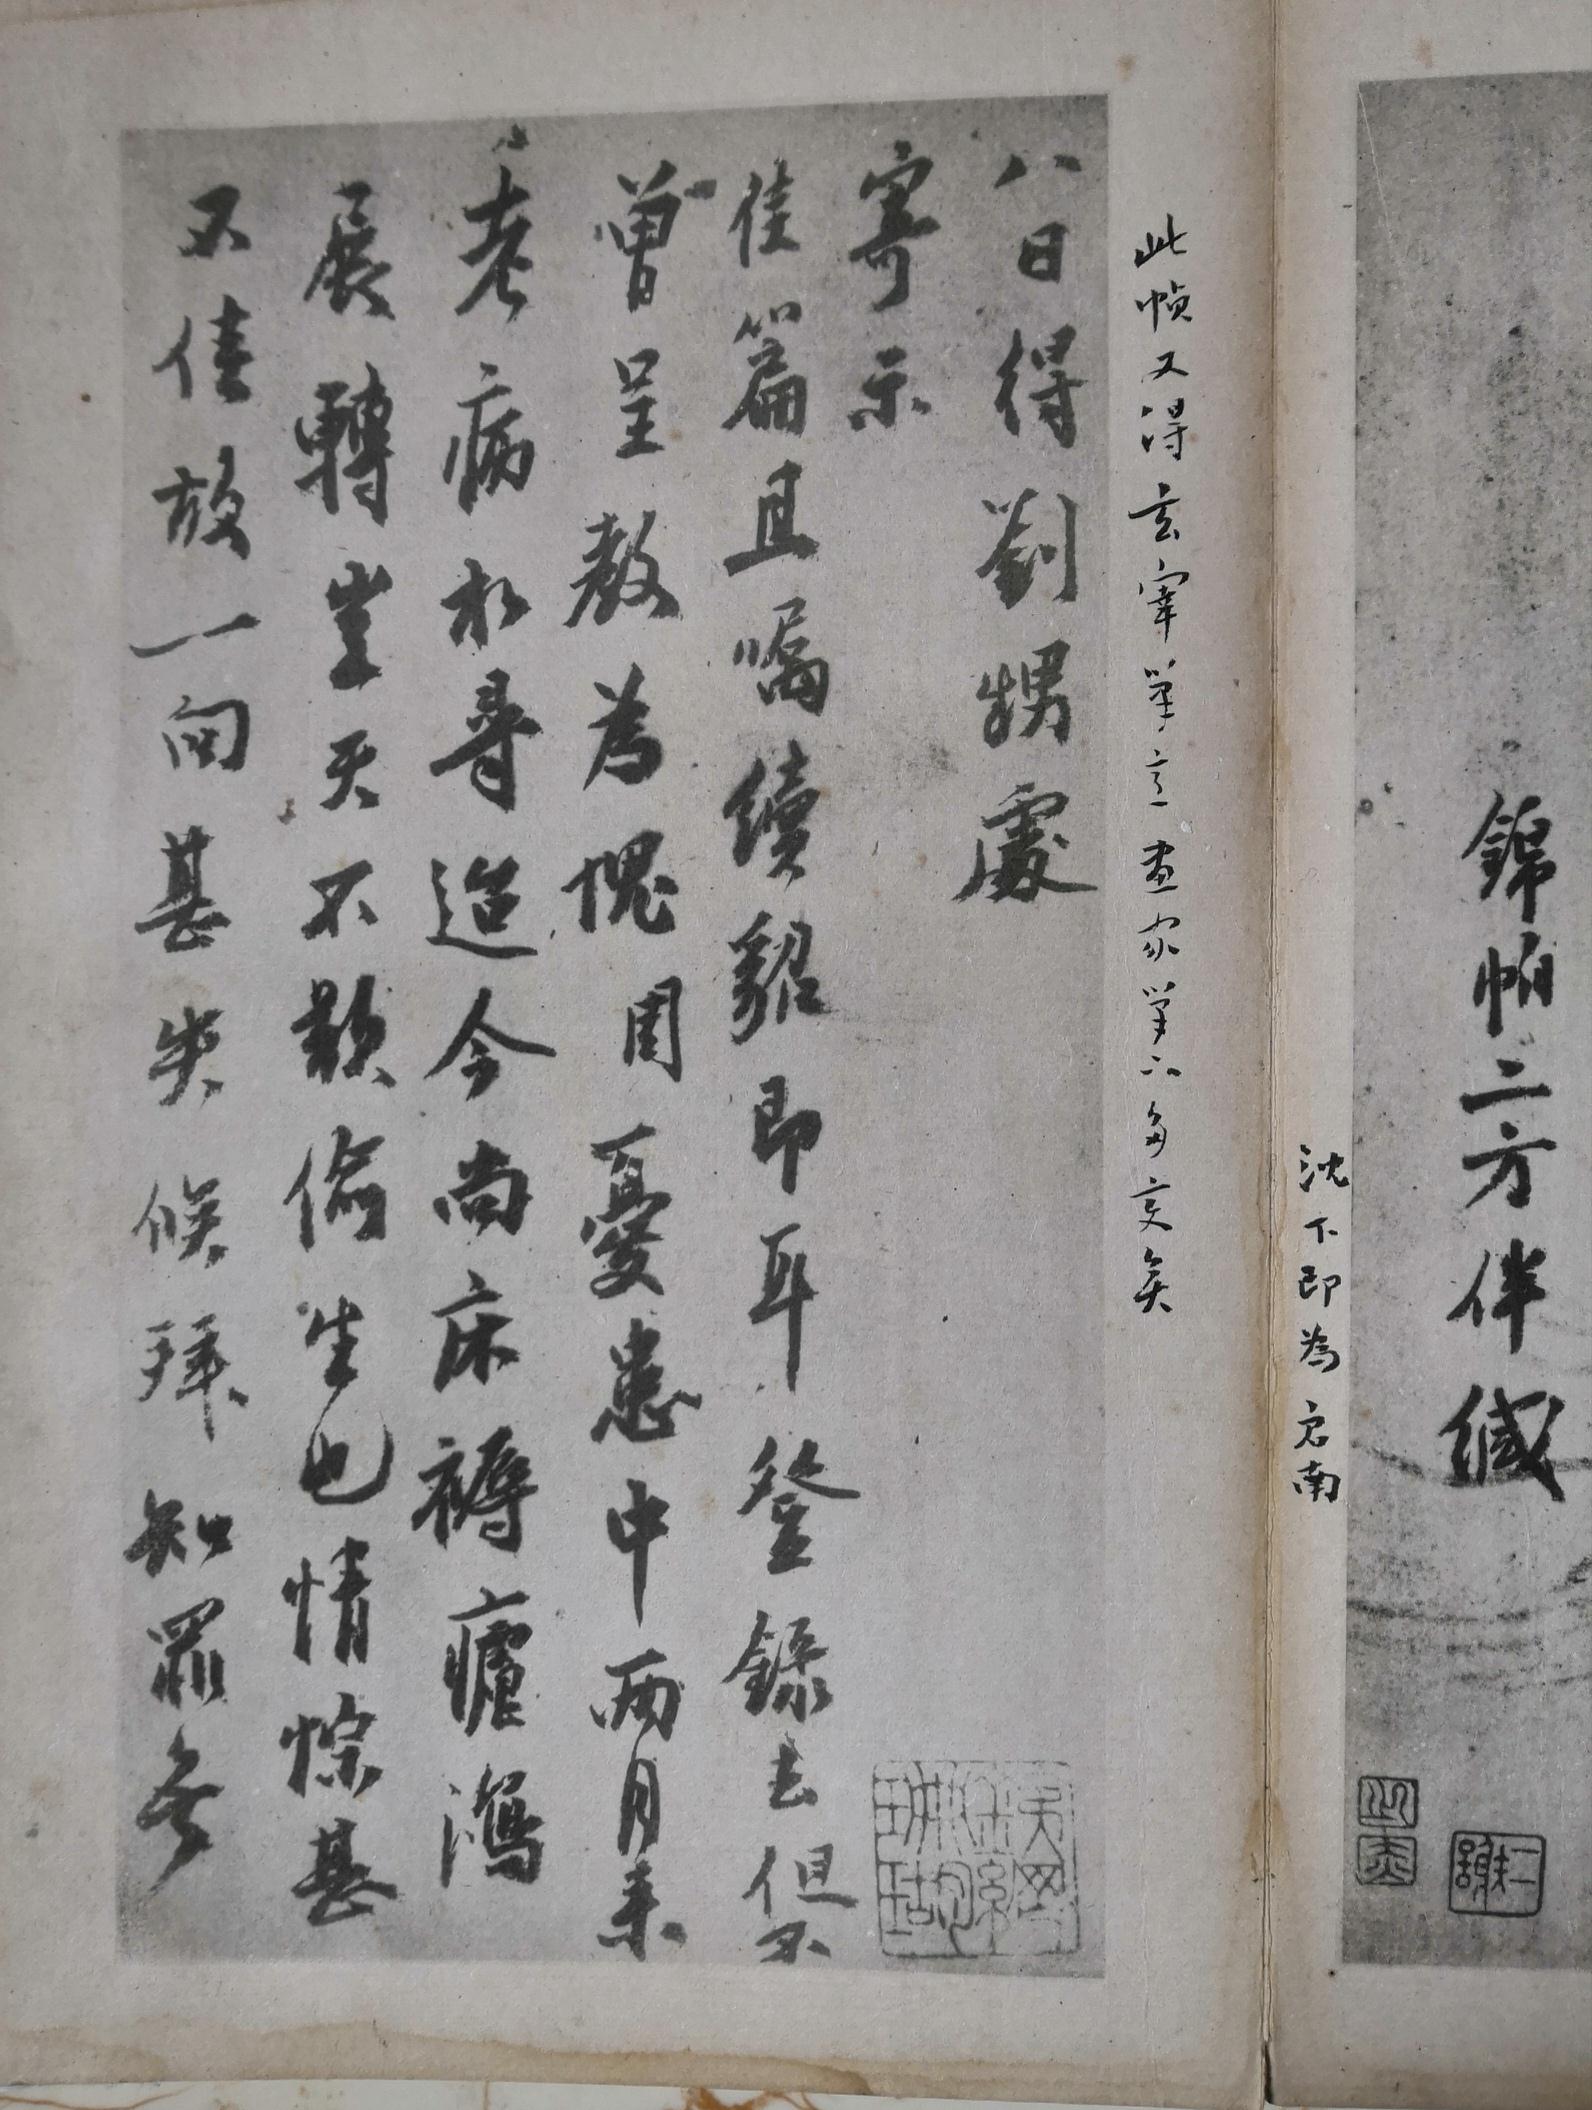 錦帕二方伴緘
沈下即為启南
此幀又得玄宰筆意畫家筆不多变矣
八日得劉甥處
寄示
佳篇且囑續貂即耳登錄去但不
曾呈教為愧周憂患中兩月來
老病相尋迨今尚床褥瘧瀉
展轉豈天不欺偷生也情悰甚
不佳故一向甚失候拜知罪無